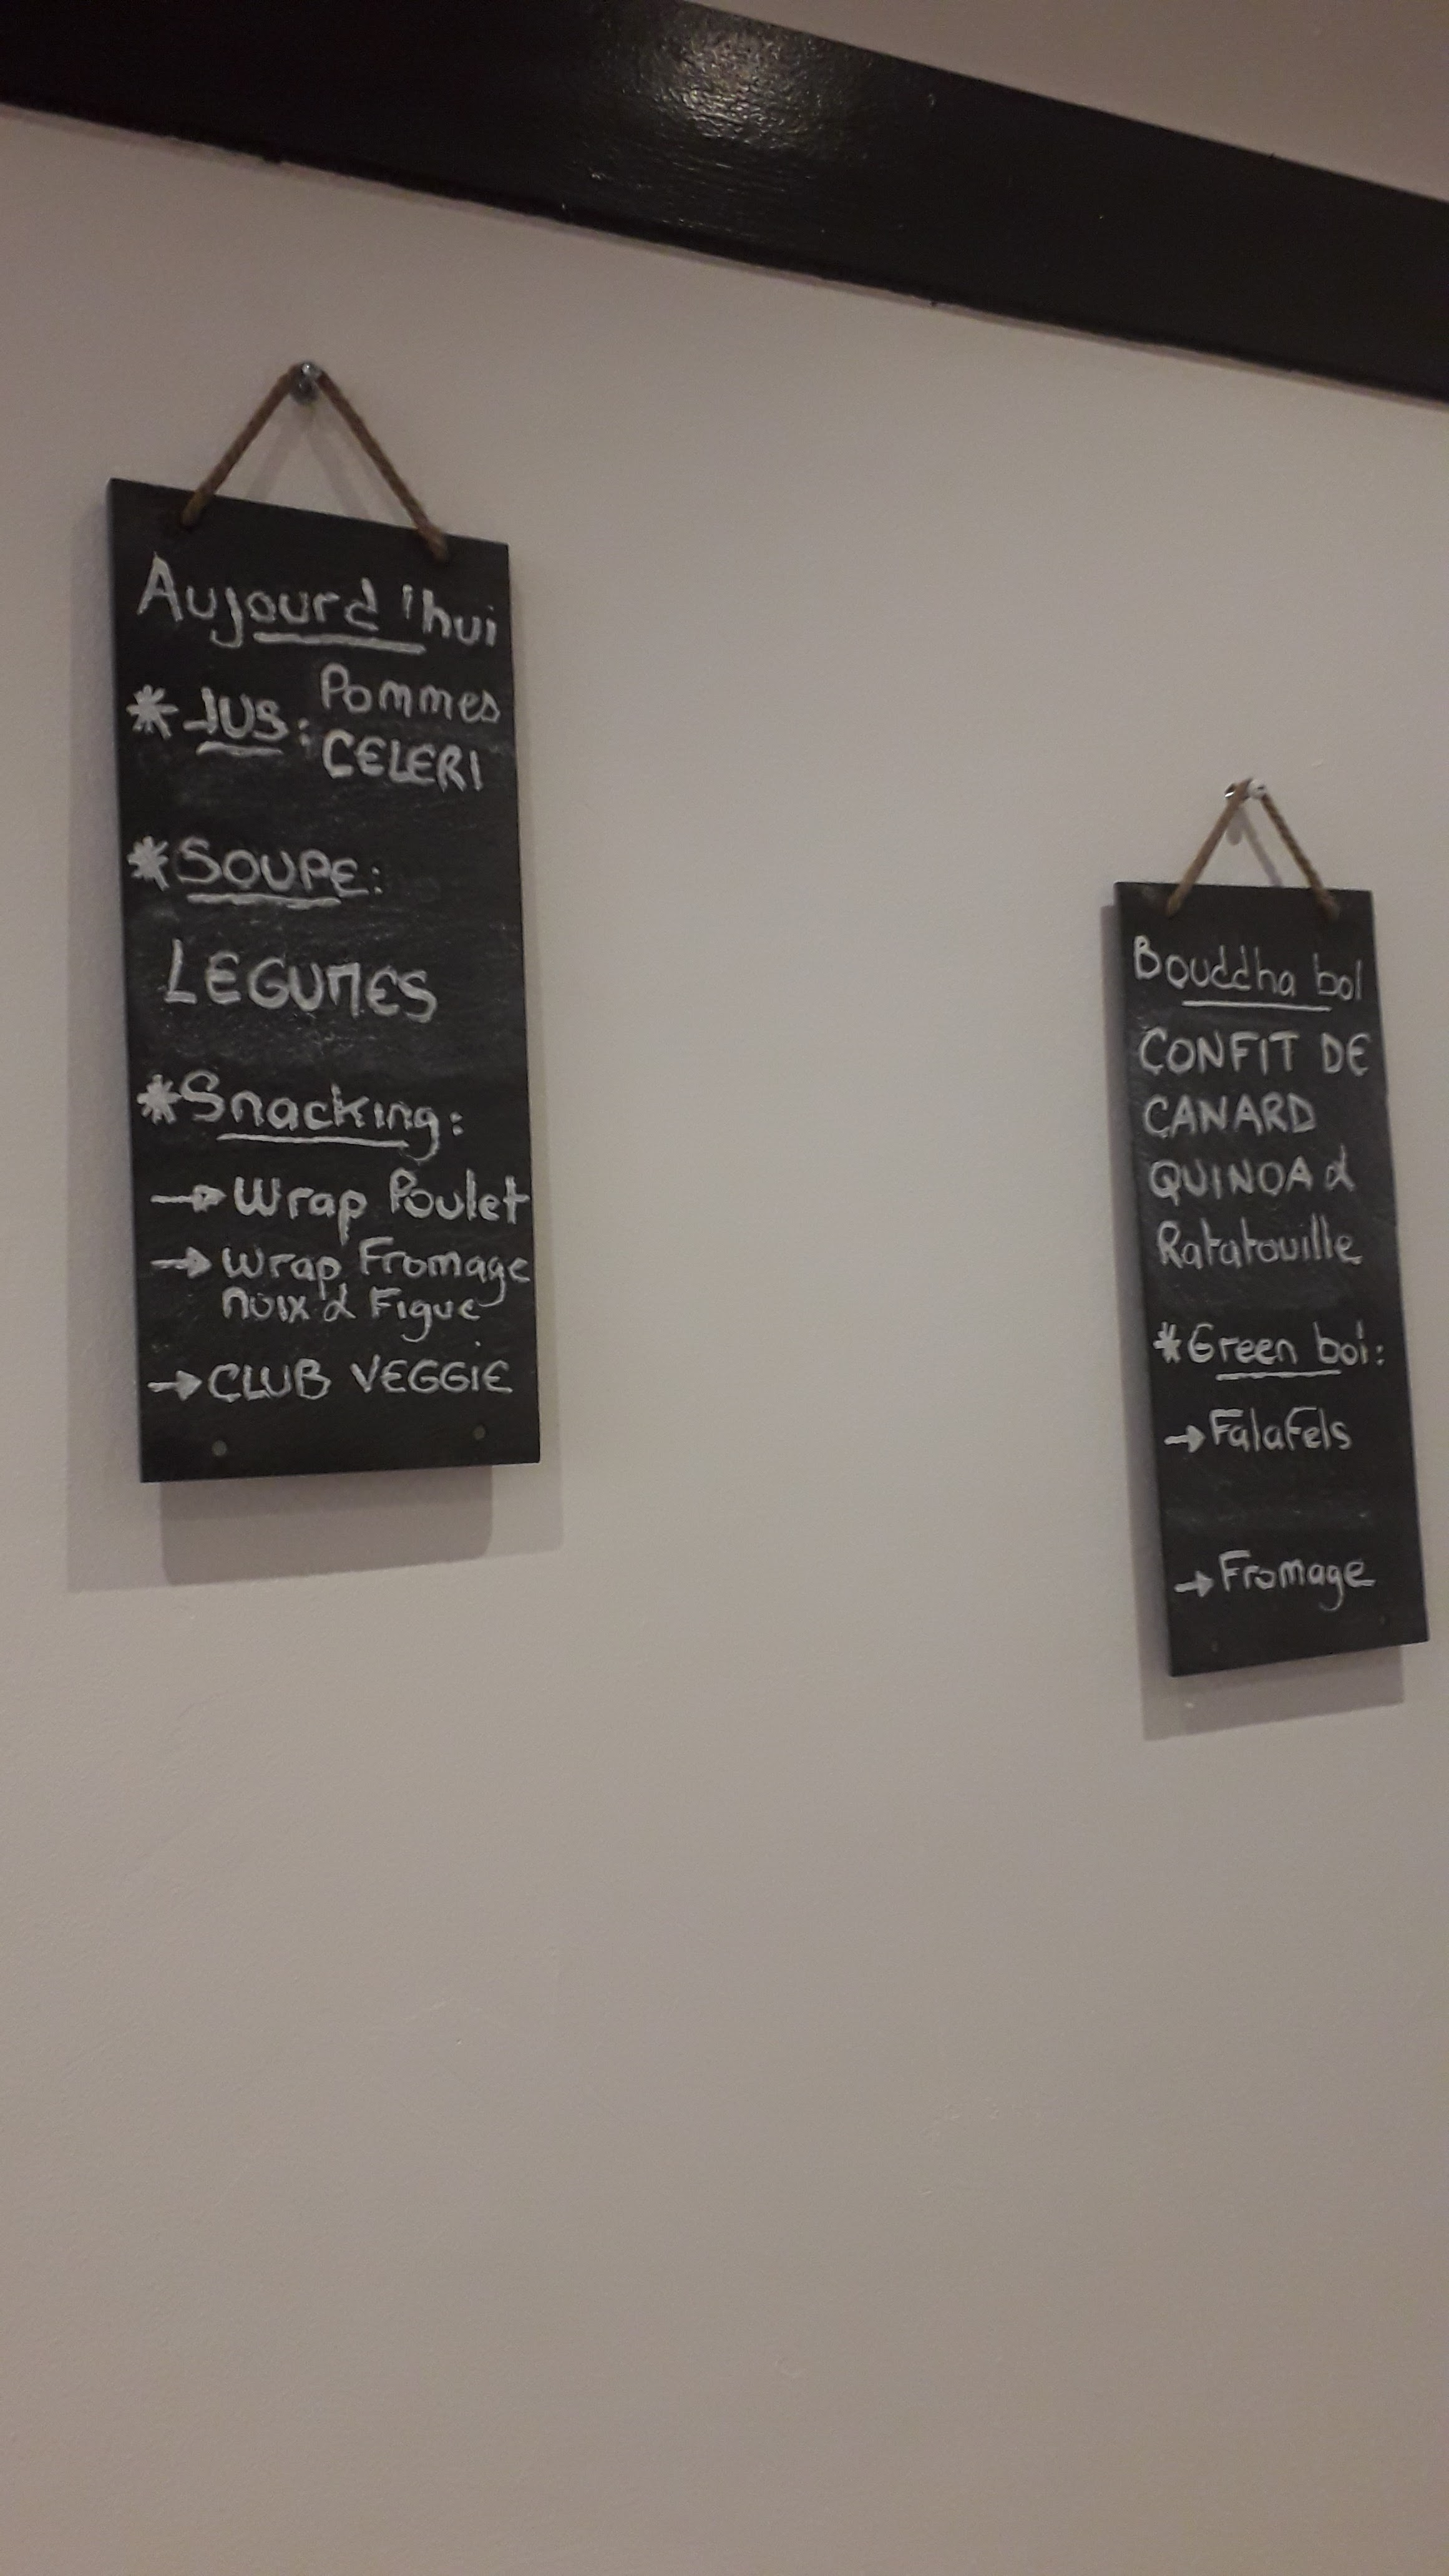 Aujourd'hui
* JUS: Pommes
CELERI
*SOUPE:
LEGUMES
*Snacking:
→ Wrap Poulet
→ Wrap Fromage
noix & Figue
→ CLUB VEGGIE
Bouddha bol
CONFIT DE
CANARD
QUINOA &
Ratatouille
*Green bol:
→ Falafels
→ Fromage